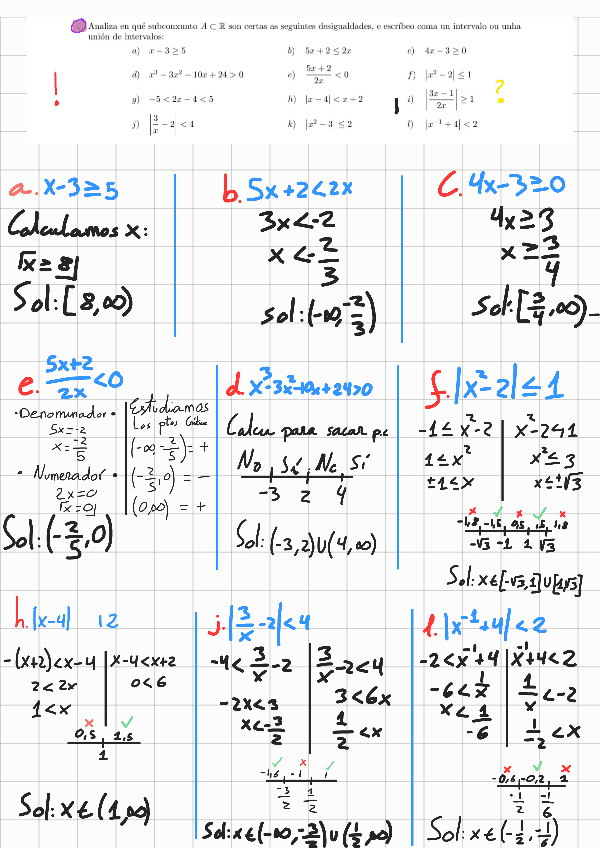 Analiza en qué subconxunto A ⊂ ℝ son certas as seguintes desigualdades, e escríbeo coma un intervalo ou unha
unión de intervalos:
a) x − 3 ≥ 5 b) 5x + 2 ≤ 2x c) 4x − 3 ≥ 0
d) x³ − 3x² − 10x + 24 > 0 e) (5x + 2)/2x < 0 f) |x² − 2| ≤ 1
g) −5 < 2x − 4 < 5 h) |x − 4| < x + 2 i) |(3x − 1)/2x| ≥ 1
j) |3/x − 2| < 4 k) |x² − 3| ≤ 2 l) |x⁻¹ + 4| < 2
!
?
a. x-3≥5
Calculamos x:
x≥8
Sol: [8,∞)
b. 5x+2<2x
3x<-2
x<-2/3
sol: (-∞,-2/3)
c. 4x-3≥0
4x≥3
x≥3/4
Sol: [3/4,∞)
e. (5x+2)/2x <0
·Denominador·
5x=-2
x=-2/5
· Numerador ·
2x=0
x=0
Estudiamos
Los ptos
(-∞,-2/5) = +
(-2/5,0) = -
(0,∞) = +
Sol: (-2/5,0)
d. x³-3x²-10x+24>0
Calcu para sacar p.c
No, Sí, No, Sí
-3 2 4
Sol: (-3,2)∪(4,∞)
f. |x²-2|≤1
-1≤x²-2
1≤x²
±1≤x
x²-2≤1
x²≤3
x≤±√3
-1,8 -1,5 0,5 1,5 1,8
-√3 -1 1 √3
Sol: x∈[-√3,1]∪[1,√3]
h. |x-4| 12
-(x+2)<x-4
2<2x
1<x
x-4<x+2
0<6
0,5 1,5
1
Sol: x∈(1,∞)
j. |3/x-2|<4
-4<3/x-2
-2x<3
x<-3/2
3/x-2<4
3<6x
1/2<x
-1,6 -1 1
-3/2 1/2
Sol: x∈(-∞,-3/2)∪(1/2,∞)
l. |x⁻¹+4|<2
-2<x⁻¹+4
-6<1/x
x<1/-6
x⁻¹+4<2
1/x<-2
1/-2<x
-0,6 -0,2 1
-1/2 -1/6
Sol: x∈(-1/2,-1/6)